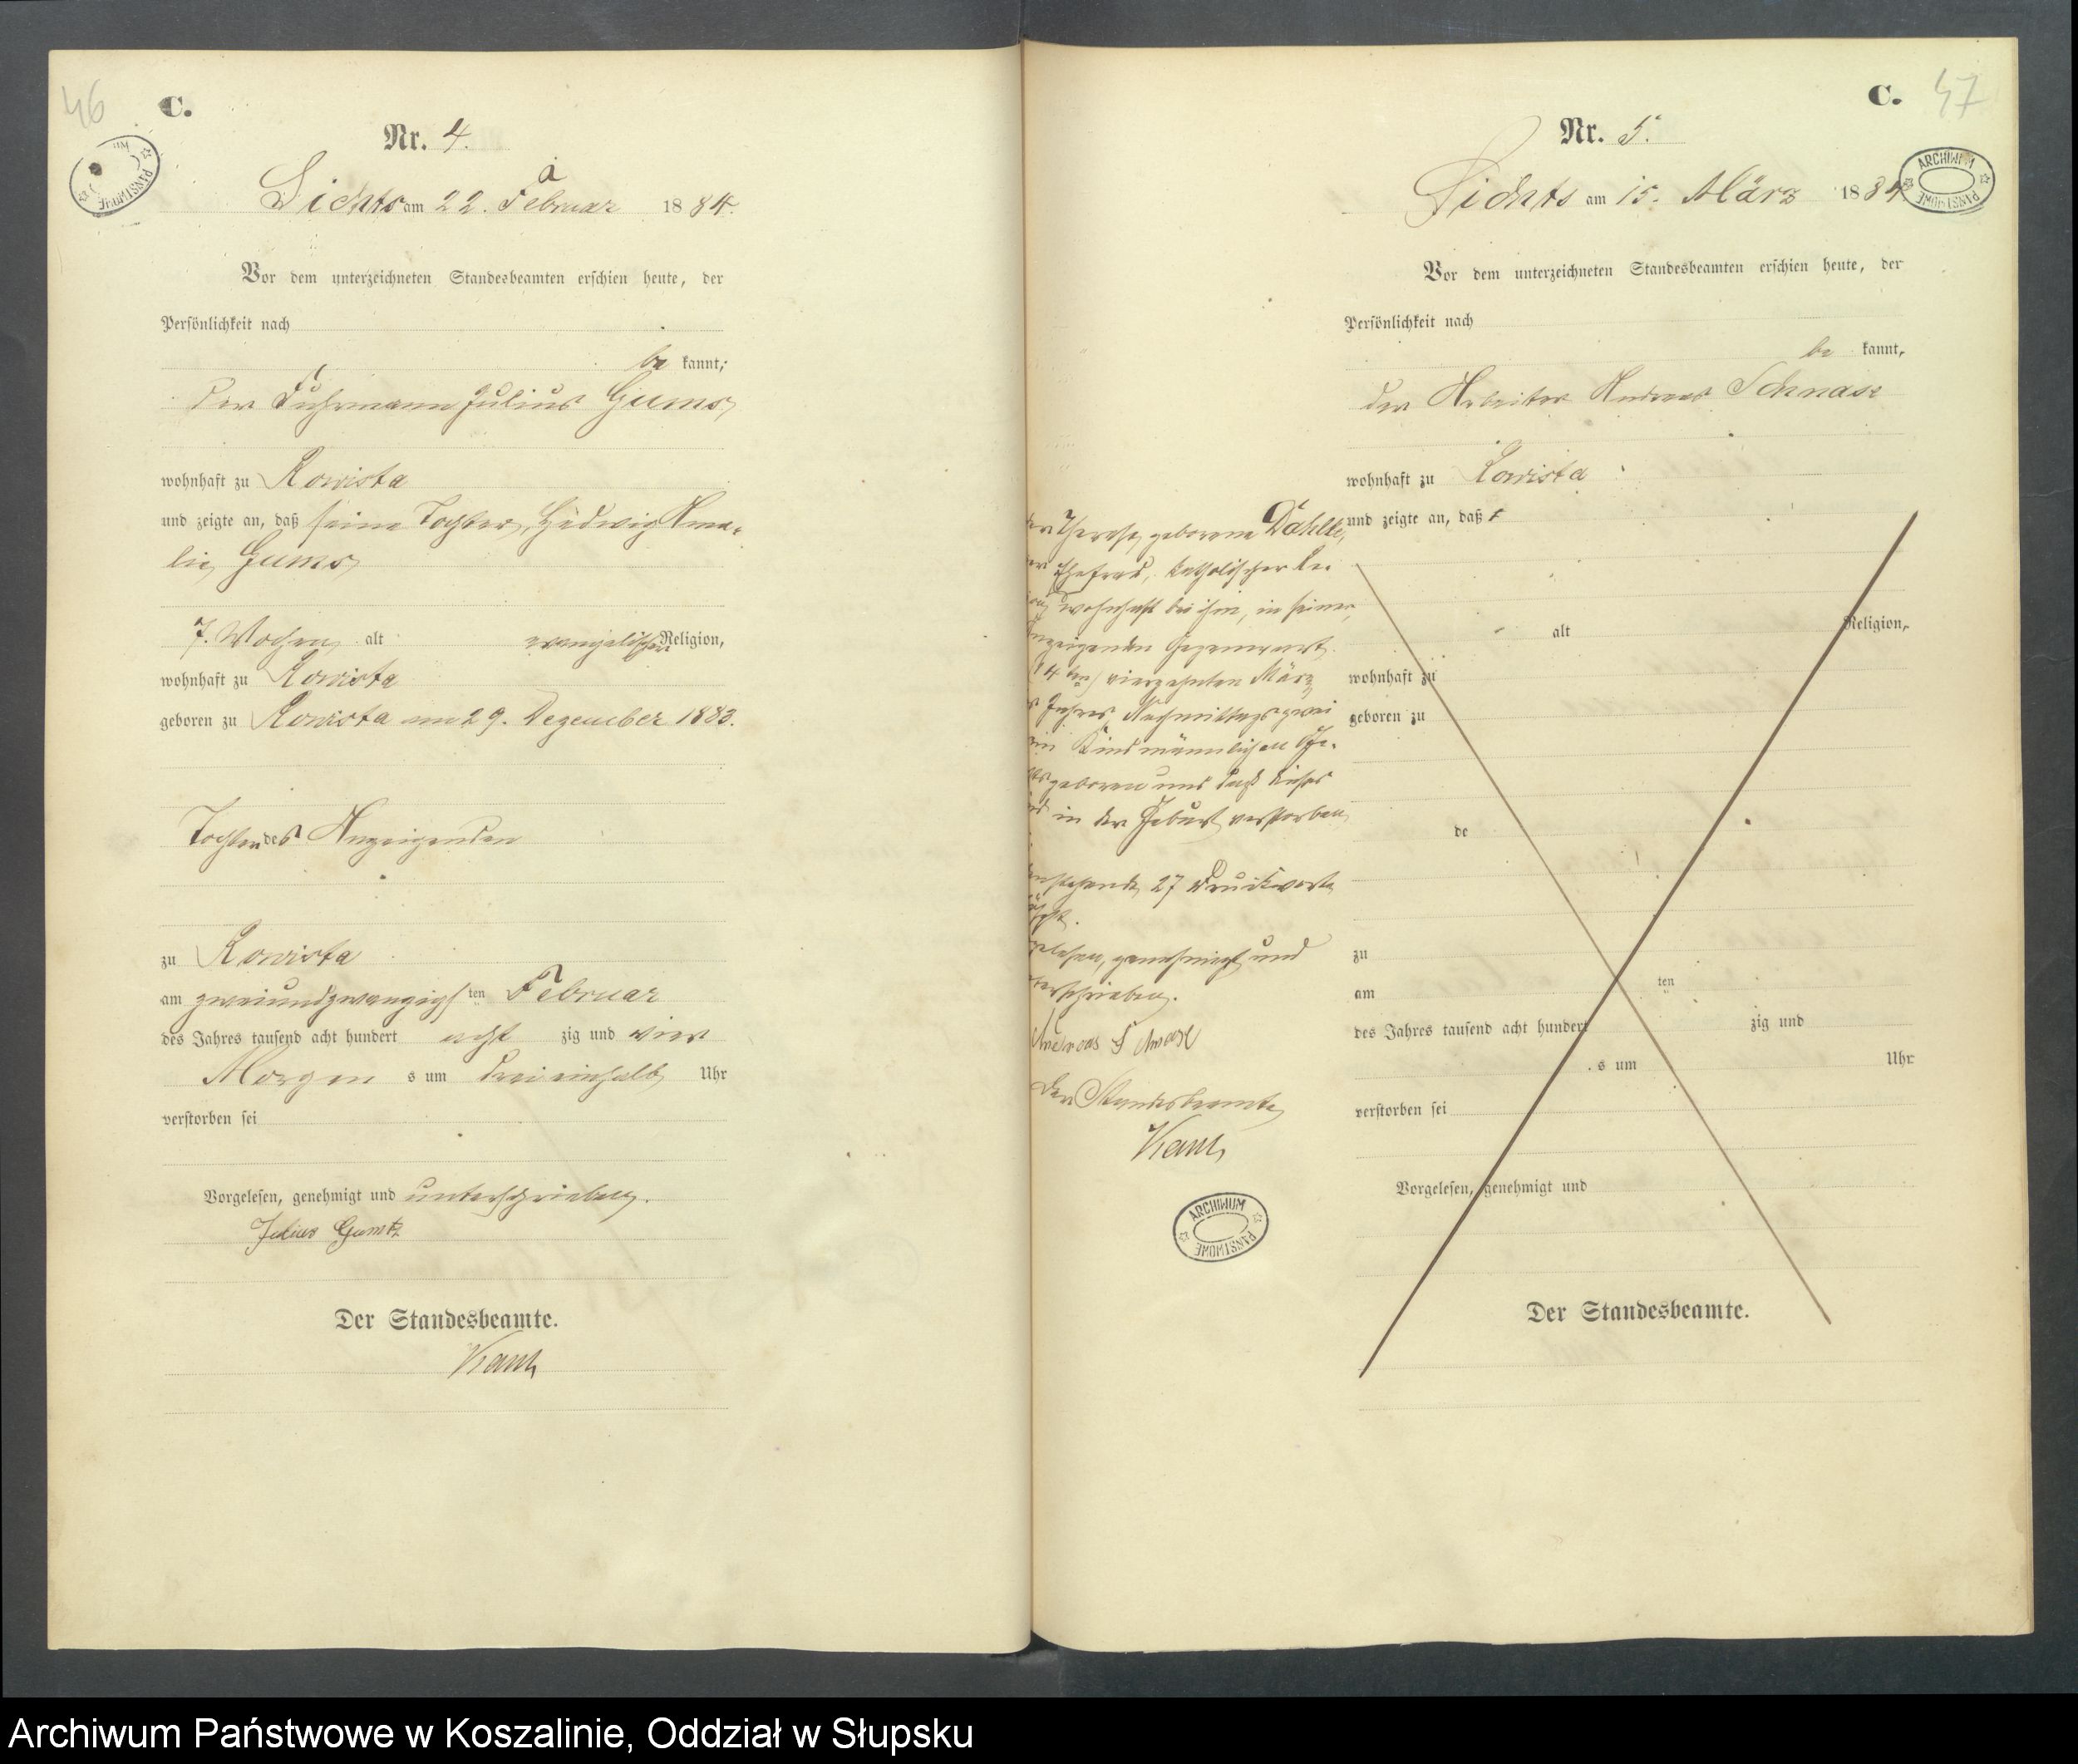 46
C.
Nr. 4.
am 22. Februar 1884.
Vor dem unterzeichneten Standesbeamten erschien heute, der
Persönlichkeit nach
be kannt,
der Fuhrmann Julius Gums
wohnhaft zu Rowista
und zeigte an, daß seine Tochter, Hedwig Ama-
lie Gums
7. Wochen alt evangelischer Religion,
wohnhaft zu Rowista
geboren zu Rowista am 29. Dezember 1883.
Tochter des Anzeigenden
zu Rowista
am zweiundzwanzigsten Februar
des Jahres tausend acht hundert acht zig und vier
Morgens um drei einhalb Uhr
verstorben sei
Vorgelesen, genehmigt und unterschrieben.
Julius Gumtz
Der Standesbeamte.
47
C.
Nr. 5.
am 15. März 1884
Vor dem unterzeichneten Standesbeamten erschien heute, der
Persönlichkeit nach
be kannt,
der Arbeiter Andreas Schnase
wohnhaft zu Rowista
und zeigte an, daß
alt Religion,
wohnhaft zu
geboren zu
de
zu
am ten
des Jahres tausend acht hundert zig und
s um Uhr
verstorben sei
Vorgelesen, genehmigt und
Der Standesbeamte.
Therese geborene Dahlke,
Ehefrau, katholischer Re-
wohnhaft bei ihm, in seiner,
Gegenwart
vierzehnten März
Jahres Nachmittags zwei
Kind männlichen Ge-
geboren und daß dieses
in der Geburt verstorben
27 Druckworte
genehmigt und
Der Standesbeamte
ARCHIWUM PAŃSTWOWE
ARCHIWUM PAŃSTWOWE
Archiwum Państwowe w Koszalinie, Oddział w Słupsku